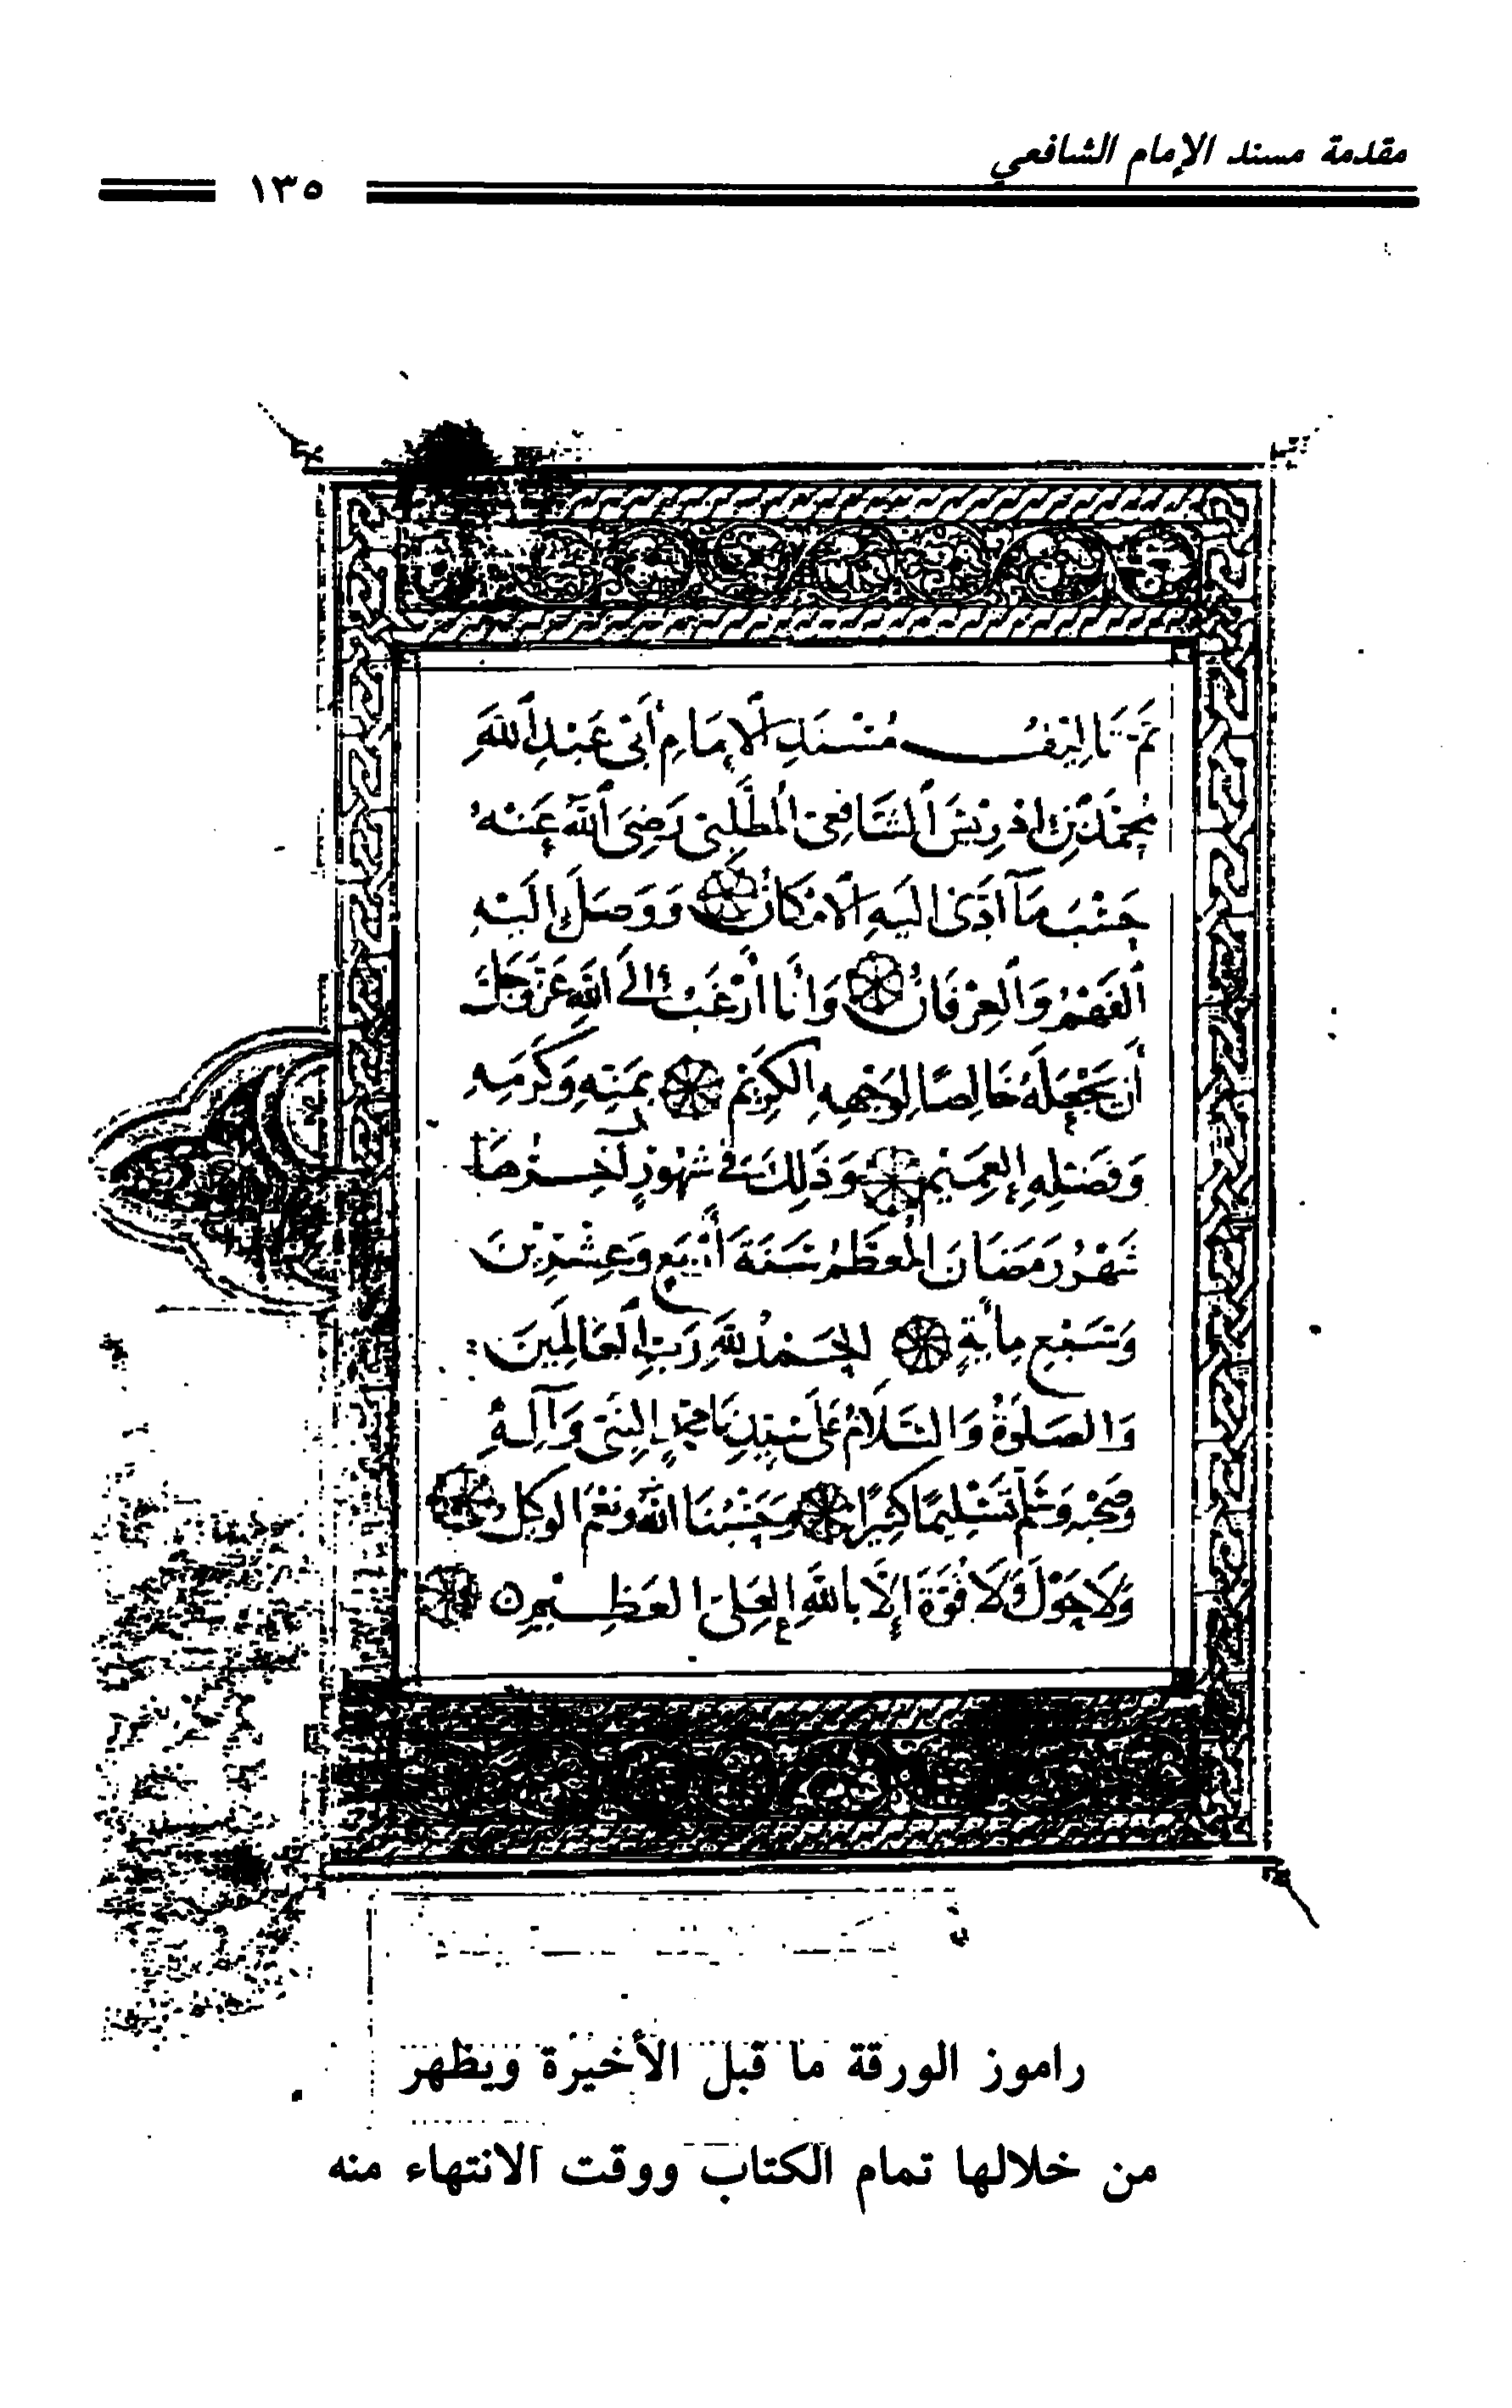 مقدمة مسند الإمام الشافعي
١٣٥
تَمَّ تَالِيْفُ مُسْنَدِ الْإِمَامِ أَبِى عَبْدِ اللَّهِ
مُحَمَّدِ بْنِ اِدْرِيْسَ الشَّافِعِىِّ الْمُطَّلِبِىِّ رَضِىَ اللَّهُ عَنْهُ
حَسْبَ مَآ اَدَّى اِلَيْهِ الْاِمْكَانُ وَوَصَلَ إِلَيْهِ
الْفَهْمُ وَالْعِرْفَانُ وَانَا أَرْغَبُ إِلَى اللَّهِ عَزَّوَجَلَّ
أَنْ يَجْعَلَهُ خَالِصًا لِوَجْهِهِ الْكَرِيْمِ بِمَنِّهِ وَكَرَمِهِ
وَفَضْلِهِ الْعَمِيْمِ وَذَلِكَ فِى شُهُوْرٍ آخِرُهَا
شَهْرُ رَمَضَانَ الْمُعَظَّمُ سَنَةَ أَرْبَعٍ وَعِشْرِيْنَ
وَسَبْعِ مِائَةٍ الْحَمْدُ لِلَّهِ رَبِّ الْعَالَمِيْنَ
وَالصَلَوٰةُ وَالسَّلَامُ عَلَى سَيِّدِنَا مُحَمَّدٍ النَّبِىِّ وَآلِهِ
وَصَحْبِهِ وَسَلَّمَ تَسْلِيْمًا كَثِيْرًا وَحَسْبُنَا اللَّهُ وَنِعْمَ الْوَكِيْلُ
وَلَا حَوْلَ وَلَا قُوَّةَ إِلَّا بِاللَّهِ الْعَلِىِّ الْعَظِيْمِ
راموز الورقة ما قبل الأخيرة ويظهر
من خلالها تمام الكتاب ووقت الانتهاء منه